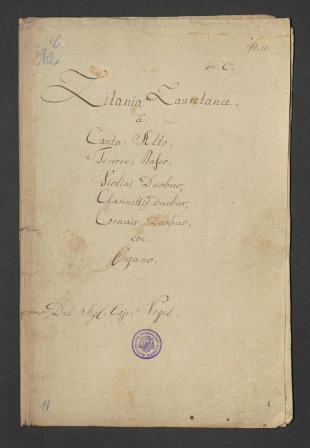 in C.
Litania Lauretance.
à
Canto, Alto,
Tenore, Basso,
Violini Duobus,
Clarinettis duobus,
Cornuis Duobus,
con
Organo.
Del Sig. Caje: Vogel.